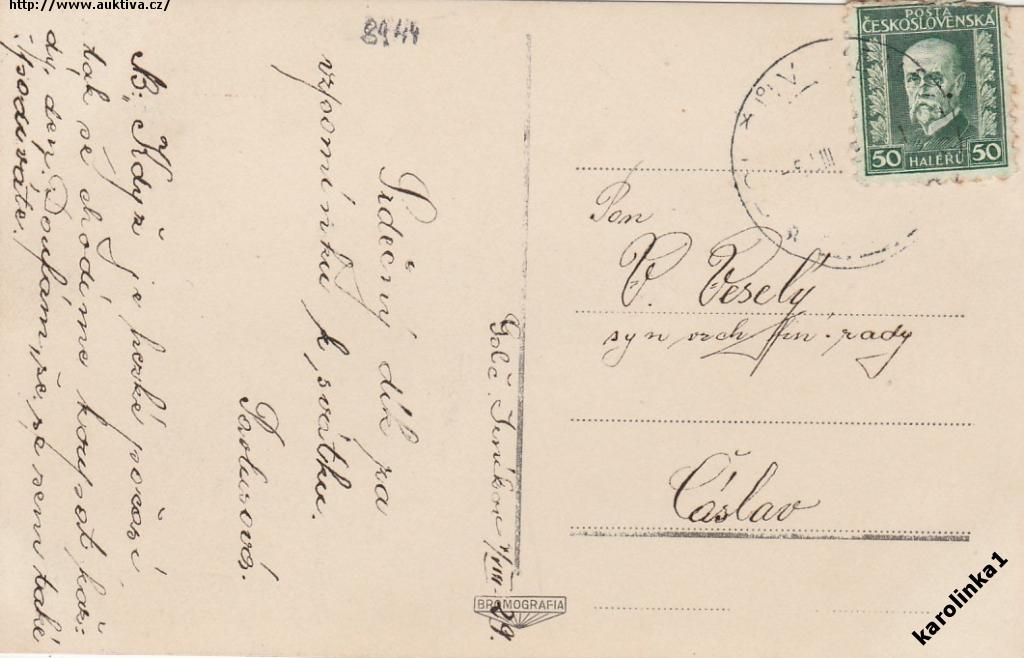 http://www.auktiva.cz/
8944
Srdečný dík za
vzpomínku k svátku.
Pavlusová.
NB: Když je hezké počasí
tak se chodíme koupat kaž:
dý den. Doufám, že se sem také
podíváte.
Golč. Jeníkov 4/VIII-29.
POŠTA
ČESKOSLOVENSKÁ
50 HALÉŘŮ 50
VIII
Pan
V. Veselý
syn vrch. fin. rady
Čáslav
BROMOGRAFIA
karolinka1